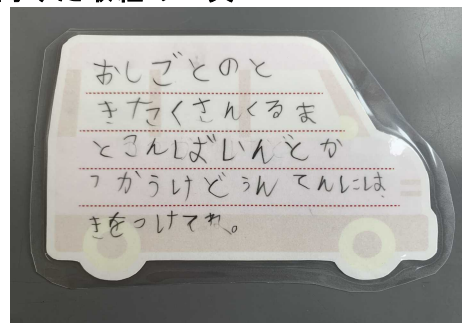 おしごとのと
きたくさんくるま
とこんばいんとか
つかうけどうんてんには
きをつけてね。